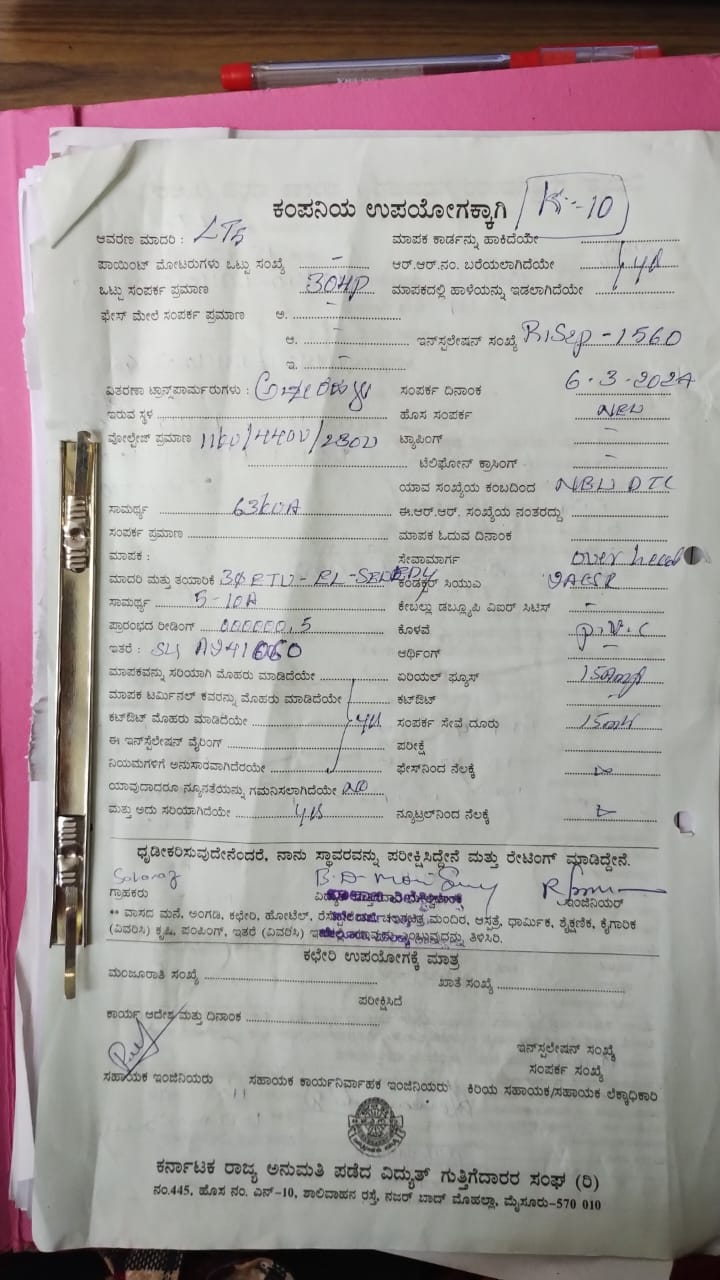 ಕಂಪನಿಯ ಉಪಯೋಗಕ್ಕಾಗಿ K-10
ಆವರಣ ಮಾದರಿ : LT5 ಮಾಪಕ ಕಾರ್ಡನ್ನು ಹಾಕಿದೆಯೇ
ಪಾಯಿಂಟ್ ಮೋಟರುಗಳು ಒಟ್ಟು ಸಂಖ್ಯೆ - ಆರ್.ಆರ್.ನಂ. ಬರೆಯಲಾಗಿದೆಯೇ
ಒಟ್ಟು ಸಂಪರ್ಕ ಪ್ರಮಾಣ 30HP ಮಾಪಕದಲ್ಲಿ ಹಾಳೆಯನ್ನು ಇಡಲಾಗಿದೆಯೇ
ಫೇಸ್ ಮೇಲೆ ಸಂಪರ್ಕ ಪ್ರಮಾಣ ಅ. -
ಆ. - ಇನ್ಸ್ಟಲೇಷನ್ ಸಂಖ್ಯೆ RISep-1560
ಇ. -
ವಿತರಣಾ ಟ್ರಾನ್ಸ್‌ಪಾರ್ಮರುಗಳು : ಸಂಪರ್ಕ ದಿನಾಂಕ 6.3.2024
ಇರುವ ಸ್ಥಳ ಹೊಸ ಸಂಪರ್ಕ NEW
ವೋಲ್ಟೇಜ್ ಪ್ರಮಾಣ 11kv/440v/230v ಟ್ಯಾಪಿಂಗ್ -
ಟೆಲಿಫೋನ್ ಕ್ರಾಸಿಂಗ್ -
ಯಾವ ಸಂಖ್ಯೆಯ ಕಂಬದಿಂದ NEW DTC
ಸಾಮರ್ಥ್ಯ 63kVA ಈ.ಆರ್.ಆರ್. ಸಂಖ್ಯೆಯ ನಂತರದ್ದು
ಸಂಪರ್ಕ ಪ್ರಮಾಣ ಮಾಪಕ ಓದುವ ದಿನಾಂಕ
ಮಾಪಕ : ಸೇವಾಮಾರ್ಗ over head
ಮಾದರಿ ಮತ್ತು ತಯಾರಿಕೆ 3Φ ETV - ಕಂಡಕ್ಟರ್ ಸಿಯುಎ ACSR
ಸಾಮರ್ಥ್ಯ 5-10A ಕೇಬಲ್ಲು ಡಬ್ಲ್ಯೂಪಿ ವಿಐರ್ ಸಿಟಿಸ್ -
ಪ್ರಾರಂಭದ ರೀಡಿಂಗ್ 000000.5 ಕೊಳವೆ P.V.C
ಇತರೆ : ಆರ್ಥಿಂಗ್ -
ಮಾಪಕವನ್ನು ಸರಿಯಾಗಿ ಮೊಹರು ಮಾಡಿದೆಯೇ ಏರಿಯಲ್ ಫ್ಯೂಸ್ 15Amp
ಮಾಪಕ ಟರ್ಮಿನಲ್ ಕವರನ್ನು ಮೊಹರು ಮಾಡಿದೆಯೇ ಕಟ್‌ಔಟ್ -
ಕಟ್‌ಔಟ್ ಮೊಹರು ಮಾಡಿದೆಯೇ ಸಂಪರ್ಕ ಸೇವೆ ದೂರು
ಈ ಇನ್‌ಸ್ಟೆಲೇಷನ್ ವೈರಿಂಗ್ ಪರೀಕ್ಷೆ
ನಿಯಮಗಳಿಗೆ ಅನುಸಾರವಾಗಿದೆರಯೇ ಫೇಸ್‌ನಿಂದ ನೆಲಕ್ಕೆ
ಯಾವುದಾದರೂ ನ್ಯೂನತೆಯನ್ನು ಗಮನಿಸಲಾಗಿದೆಯೇ NO
ಮತ್ತು ಅದು ಸರಿಯಾಗಿದೆಯೇ ನ್ಯೂಟ್ರಲ್‌ನಿಂದ ನೆಲಕ್ಕೆ
ಧೃಡೀಕರಿಸುವುದೇನೆಂದರೆ, ನಾನು ಸ್ಥಾವರವನ್ನು ಪರೀಕ್ಷಿಸಿದ್ದೇನೆ ಮತ್ತು ರೇಟಿಂಗ್ ಮಾಡಿದ್ದೇನೆ.
ಗ್ರಾಹಕರು ಇಂಜಿನಿಯರ್
** ವಾಸದ ಮನೆ, ಅಂಗಡಿ, ಕಛೇರಿ, ಹೋಟೆಲ್, ಮಂದಿರ, ಆಸ್ಪತ್ರೆ, ಧಾರ್ಮಿಕ, ಶೈಕ್ಷಣಿಕ, ಕೈಗಾರಿಕ
(ವಿವರಿಸಿ) ಕೃಷಿ, ಪಂಪಿಂಗ್, ಇತರೆ (ವಿವರಿಸಿ) ಎಂಬುವುದನ್ನು ತಿಳಿಸಿರಿ.
ಕಛೇರಿ ಉಪಯೋಗಕ್ಕೆ ಮಾತ್ರ
ಮಂಜೂರಾತಿ ಸಂಖ್ಯೆ ಖಾತೆ ಸಂಖ್ಯೆ
ಪರೀಕ್ಷಿಸಿದೆ
ಕಾರ್ಯ ಆದೇಶ ಮತ್ತು ದಿನಾಂಕ
ಇನ್‌ಸ್ಪಲೇಷನ್ ಸಂಖ್ಯೆ
ಸಂಪರ್ಕ ಸಂಖ್ಯೆ
ಸಹಾಯಕ ಇಂಜಿನಿಯರು ಸಹಾಯಕ ಕಾರ್ಯನಿರ್ವಾಹಕ ಇಂಜಿನಿಯರು ಕಿರಿಯ ಸಹಾಯಕ/ಸಹಾಯಕ ಲೆಕ್ಕಾಧಿಕಾರಿ
ಕರ್ನಾಟಕ ರಾಜ್ಯ ಅನುಮತಿ ಪಡೆದ ವಿದ್ಯುತ್ ಗುತ್ತಿಗೆದಾರರ ಸಂಘ (ರಿ)
ನಂ.445, ಹೊಸ ನಂ. ಎನ್-10, ಶಾಲಿವಾಹನ ರಸ್ತೆ, ನಜರ್ ಬಾದ್ ಮೊಹಲ್ಲಾ, ಮೈಸೂರು-570 010